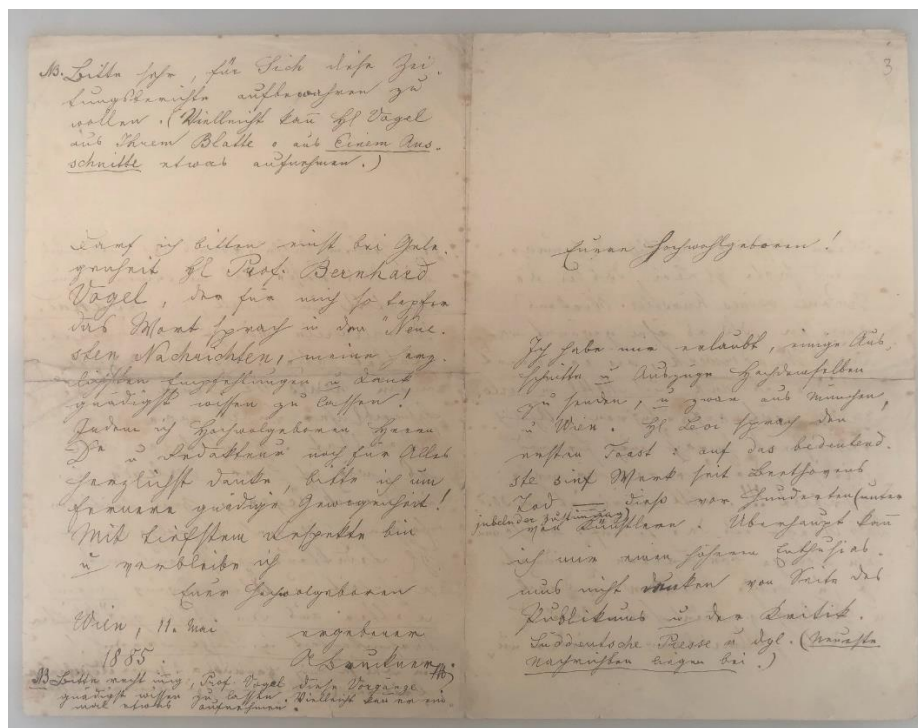 NB. Bitte sehr, für Sich diese Zei-
tungsberichte aufbewahren zu
wollen. (Vielleicht kann H Vogel
aus Ihrem Blatte o aus Einem Aus-
schnitte etwas aufnehmen.)
Darf ich bitten einst bei Gele-
genheit H Prof: Bernhard
Vogel, der für mich so tapfer
das Wort sprach in den "Neue-
sten Nachrichten, meine herz-
lichsten Empfehlungen u Dank
gnädigst wissen zu lassen!
Indem ich Hochwolgeboren Herrn
Dr u Redakteur noch für Alles
herzlichst danke, bitte ich um
fernere gnädige Gewogenheit!
Mit tiefstem Respekte bin
u verbleibe ich
Euer Hochwolgeboren
Wien, 11. Mai ergebener
1885. ABruckner.
NB Bitte recht innig, Prof. Vogel diese Vorgänge
gnädigst wissen zu lassen. Vielleicht kann er ein-
mal etwas aufnehmen.
3
Euere Hochwohlgeboren!
Ich habe mir erlaubt, einige Aus-
schnitte u Auszüge Hochdemselben
zu senden, u zwar aus München,
u Wien. H Levi sprach den
ersten Toast: auf das bedeutend-
ste sinf Werk seit Beethovens
Tod — dieß vor Hunderten (unter
jubelnder Zustimmung)
von Künstlern. Überhaupt kann
ich mir einen höheren Enthusias-
mus nicht denken von Seite des
Publikums u der Kritik.
Süddeutsche Presse u dgl. (Neueste
Nachrichten liegen bei.)